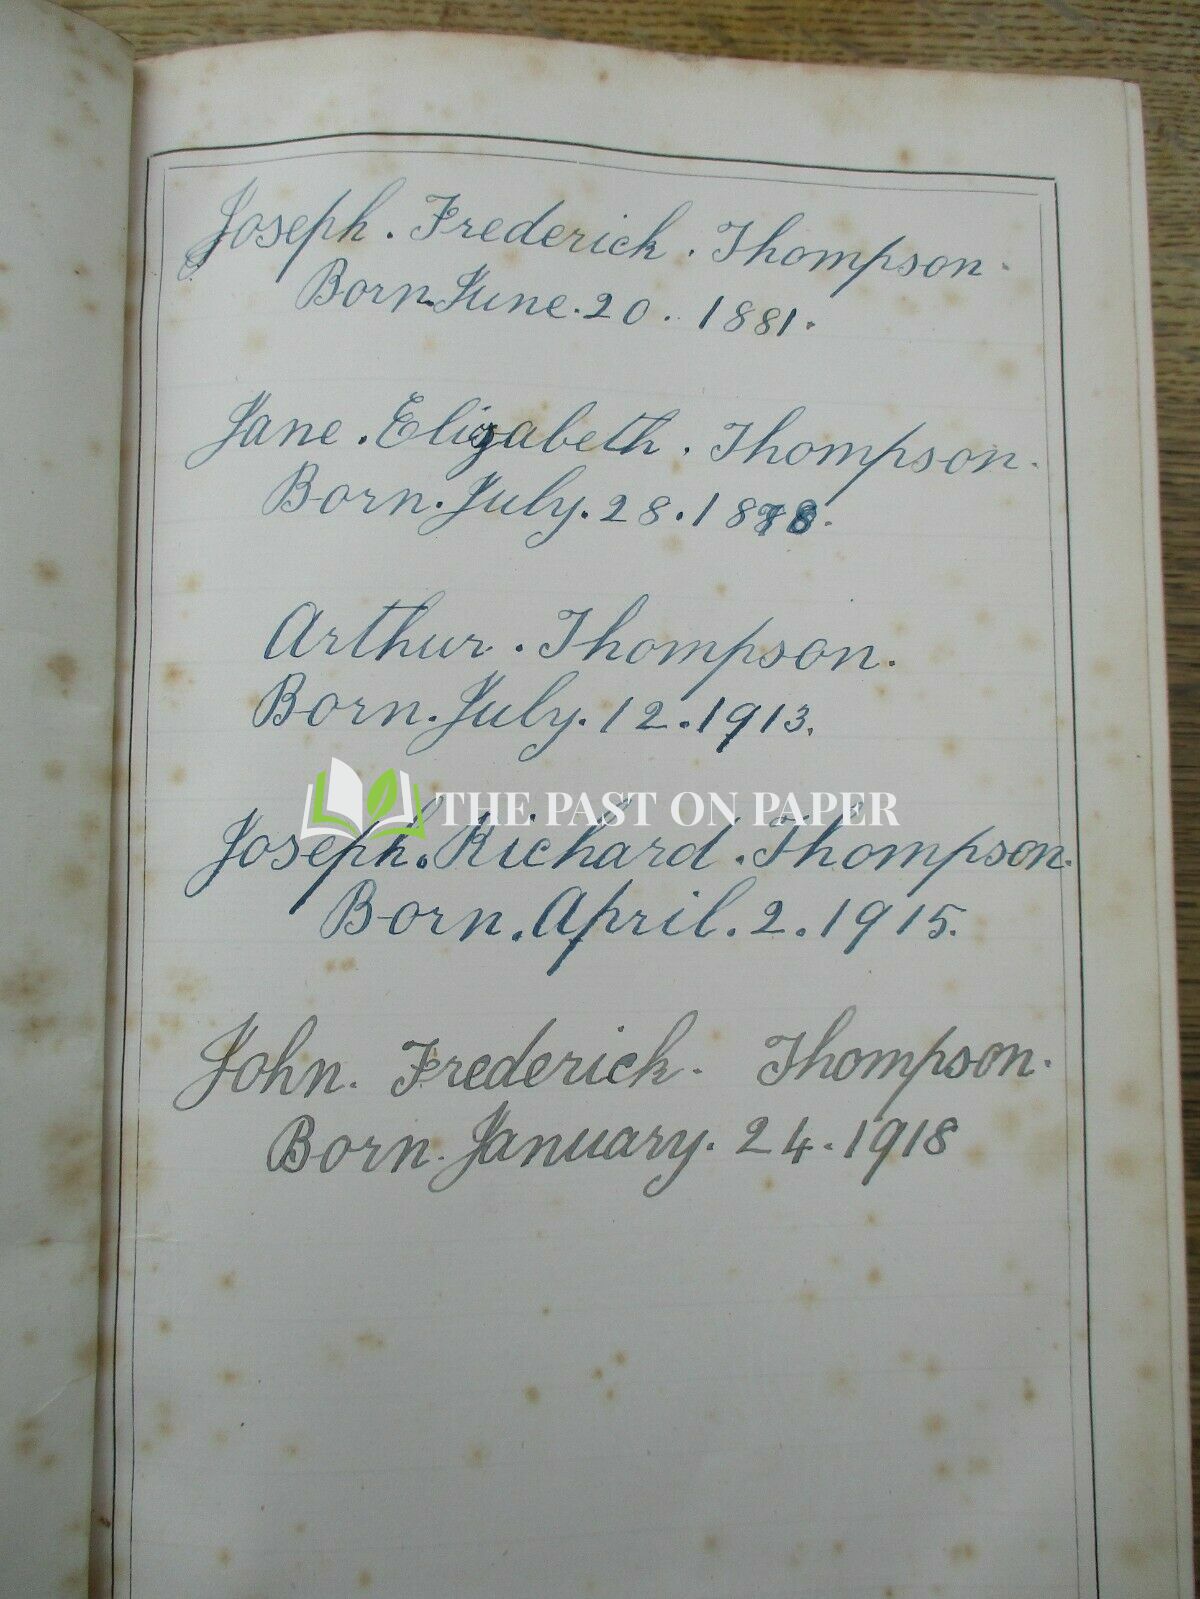 Joseph. Frederick. Thompson.
Born. June. 20. 1881.
Jane. Elizabeth. Thompson.
Born. July. 28. 1878.
Arthur. Thompson.
Born. July. 12. 1913.
THE PAST ON PAPER
Joseph. Richard. Thompson.
Born. April. 2. 1915.
John. Frederick. Thompson.
Born. January. 24. 1918